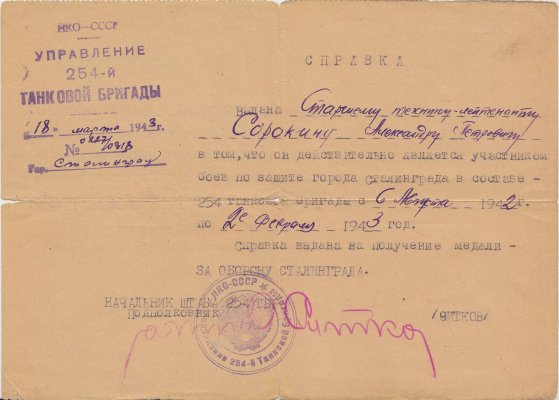 НКО—СССР
УПРАВЛЕНИЕ
254-й
ТАНКОВОЙ БРИГАДЫ
18 марта 1943г.
№
Гор. Сталинград
СПРАВКА
Выдана Старшему технику-лейтенанту
Сорокину Александру Петровичу
в том, что он действительно является участником
боев по защите города сталинграда в составе -
254 танковой бригады с 6 Августа 1942
по 2е февраля 1943 год.
Справка выдана на получение медали -
ЗА ОБОРОНУ СТАЛИНГРАДА.
НАЧАЛЬНИК ШТАБА 254 ТБР
Подполковник /ФИТКОВ/
НКО-СССР
254-й Танковой